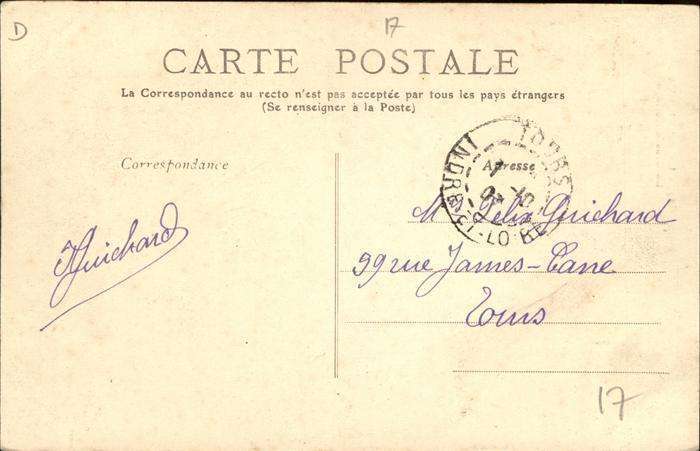 D
17
CARTE POSTALE
La Correspondance au recto n'est pas acceptée par tous les pays étrangers
(Se renseigner à la Poste)
Correspondance
Adresse
TOURS
INDRE-ET-LOIRE
Guichard
M. Félix Guichard
59 rue James-Cane
Tours
17